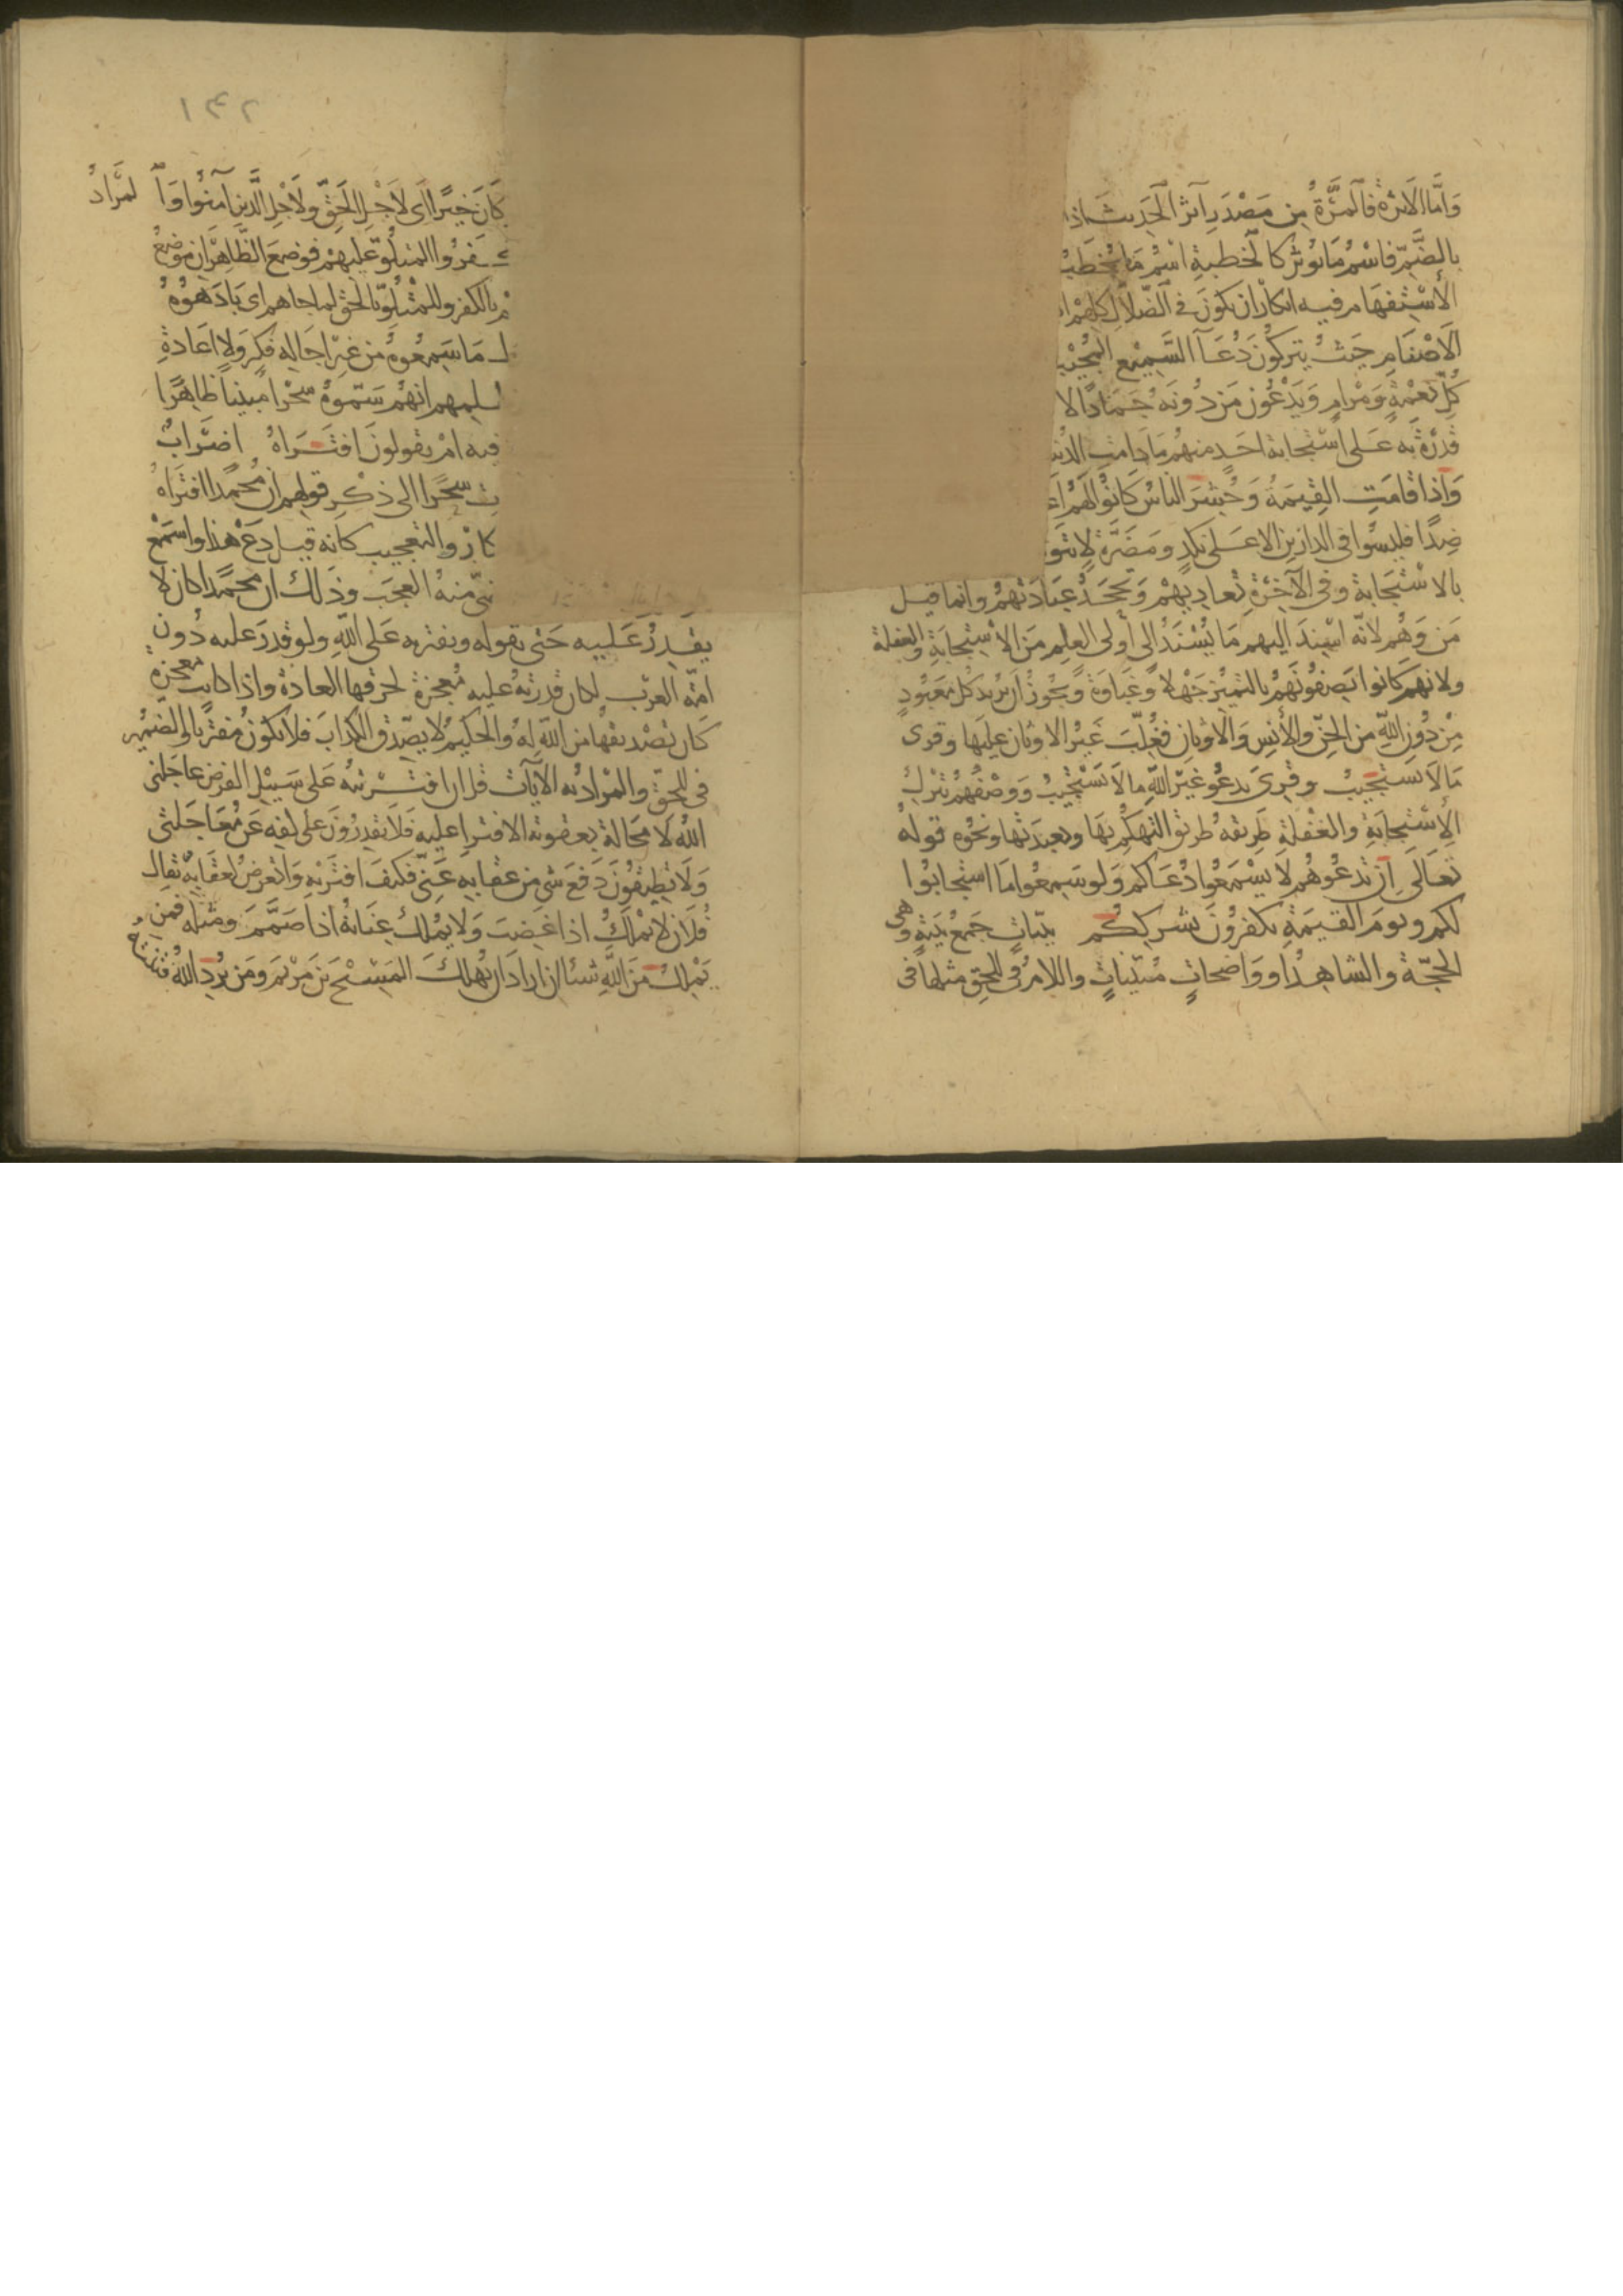 وَأمَّا الأثرة فالمَرَّةُ مِن مَصْدَرِ آثَرَ الحَدِيثَ اذا
بالضَّمِّ فاسْمُ مَا يُوثر كالخُطبةِ اسْمُ مَا يُخطَبُ
الأسْتِفهَام فيه انكارُ ان يكونَ في الضّلالِ كلهم
الأصْنَامِ حَيثُ يتركُونَ دُعَآ السَّمِيْعِ المُجيْبِ
كُلِّ نعْمةٍ وَمَرامٍ وَيَدْعُونَ مَن دُونَهُ جَمَادًا لا
قدْرَةَ به عَلى اسْتجابة احَدٍ منهم مَا دَامت الدُنيا
وَاذا قامَتِ القِيمَةُ وَحُشرَ الناسُ كَانُوا لَهُمْ
ضِدًا فليسُوا في الدارَين الا عَلى نكدٍ وَمَضَرَّةٍ لا تتو
بالاسْتجَابة وفي الآخِرَةِ تُعادِيهمْ وَتجْحَدُ عِبَادَتهُمْ وانما قيل
مَن وَهُم لانّه اسْنِدَ اليهم مَا يُسْنَدُ الى أولى العلم مَن الاسْتجابَةِ والغفلة
ولانهم كَانوا يَصِفُونَهُمْ بالتمْيُز جَهْلا وَغَبَاوَةً وَيجُوزُ ان يريدَ كل مَعبُودٍ
مِنْ دُونِ اللهِ من الجنّ والأنسِ والأوثانِ فغُلّبَ غَيْرُ الاوثان عليهَا وقرى
مَا لَا يَستجيبُ وقرى يَدعُو غيْرَ اللهِ ما لا يَسْتجِيبُ وَوَصْفُهُم بترْكِ
الأسْتِجابَةِ والغفلةِ طَريقه طريق التهكُمِ بهَا وبعبَدتها ونحوه قولهُ
تعَالَى إن تدعُوهُم لا يَسْمَعُوا دُعَاكم وَلو سَمِعُوا مَا استجابُوا
لكم ويومَ القيمَةِ يكفرُونَ بشركِكُم بيّناتٍ جَمعُ بَيّنةٍ وهى
الحجّة والشاهدُ او وَاضحاتٍ مُبَيّناتٍ واللامُ في للحَقِ مثلها فى
كَانَ خيْرًا اى لأجْلِ الحَقّ ولَاجْلِ الَّذينَ آمَنُوا وَالمَرادُ
كَفرُوا المتلُوّ عَليهمْ فوضعَ الظَّاهِرَانِ مَوضِعَ
م بالكفر وللمَتْلُوّ بالحَق لما جاهم اى بَادَهُوهُ
ل مَا سَمِعُوهُ من غيْر اجَالةِ فِكرٍ وَلا اعَادةِ
ظلمهم انهُمْ سَمّوهُ سِحْرًا مُبينا ظاهِرًا
فيه ام يقولونَ افتَرَاهُ اضرَابٌ
ت سحْرًا الى ذكرِ قولهم ان مُحمدًا افترَاهُ
كار والتعجيب كانه قيل دَعْ هَذا واسْمَعْ
ضي منهُ العجَبَ وذَلك ان محمدًا كان لا
يقدِرُ عَلَيه حَتى يقوله ويفتريه عَلى اللهِ ولو قدرَ عليه دُونَ
امّة العرَب لكان قدرَتهُ عليه مُعجزة لخرقها العادة واذا كانت مُعجزة
كَان تصْديقهَا من اللهِ لهُ والحكيمُ لا يصَدّق الكذابَ فلا يكونُ مُفتَرِيا والضميُر
في للحَقّ والمُرادُ به الآيات قل ان افترَيْتهُ عَلى سَبيْل الفرض عاجَلنى
اللهُ لا مَحَالة بعقوبة الافترا عليه فلا تقدِرُونَ عَلى كفه عَن مُعَاجَلتى
وَلا تُطيقُونَ دَفعَ شيٍ من عقابه عَنّى فكيفَ افترَيْهِ وَاتعَرضُ لعقابه يُقال
فُلَان لا يَمْلِكُ اذا غَضِبَ وَلا يَمْلك عِنَانَهُ اذا صَمَّمَ ومثله فمن
يَمْلِكُ مَنَ اللهِ شيئا ان ارادَ ان يُهلكَ المَسِيْحَ بنَ مَرْيمَ وَمَن يُردِ اللهُ فتنته